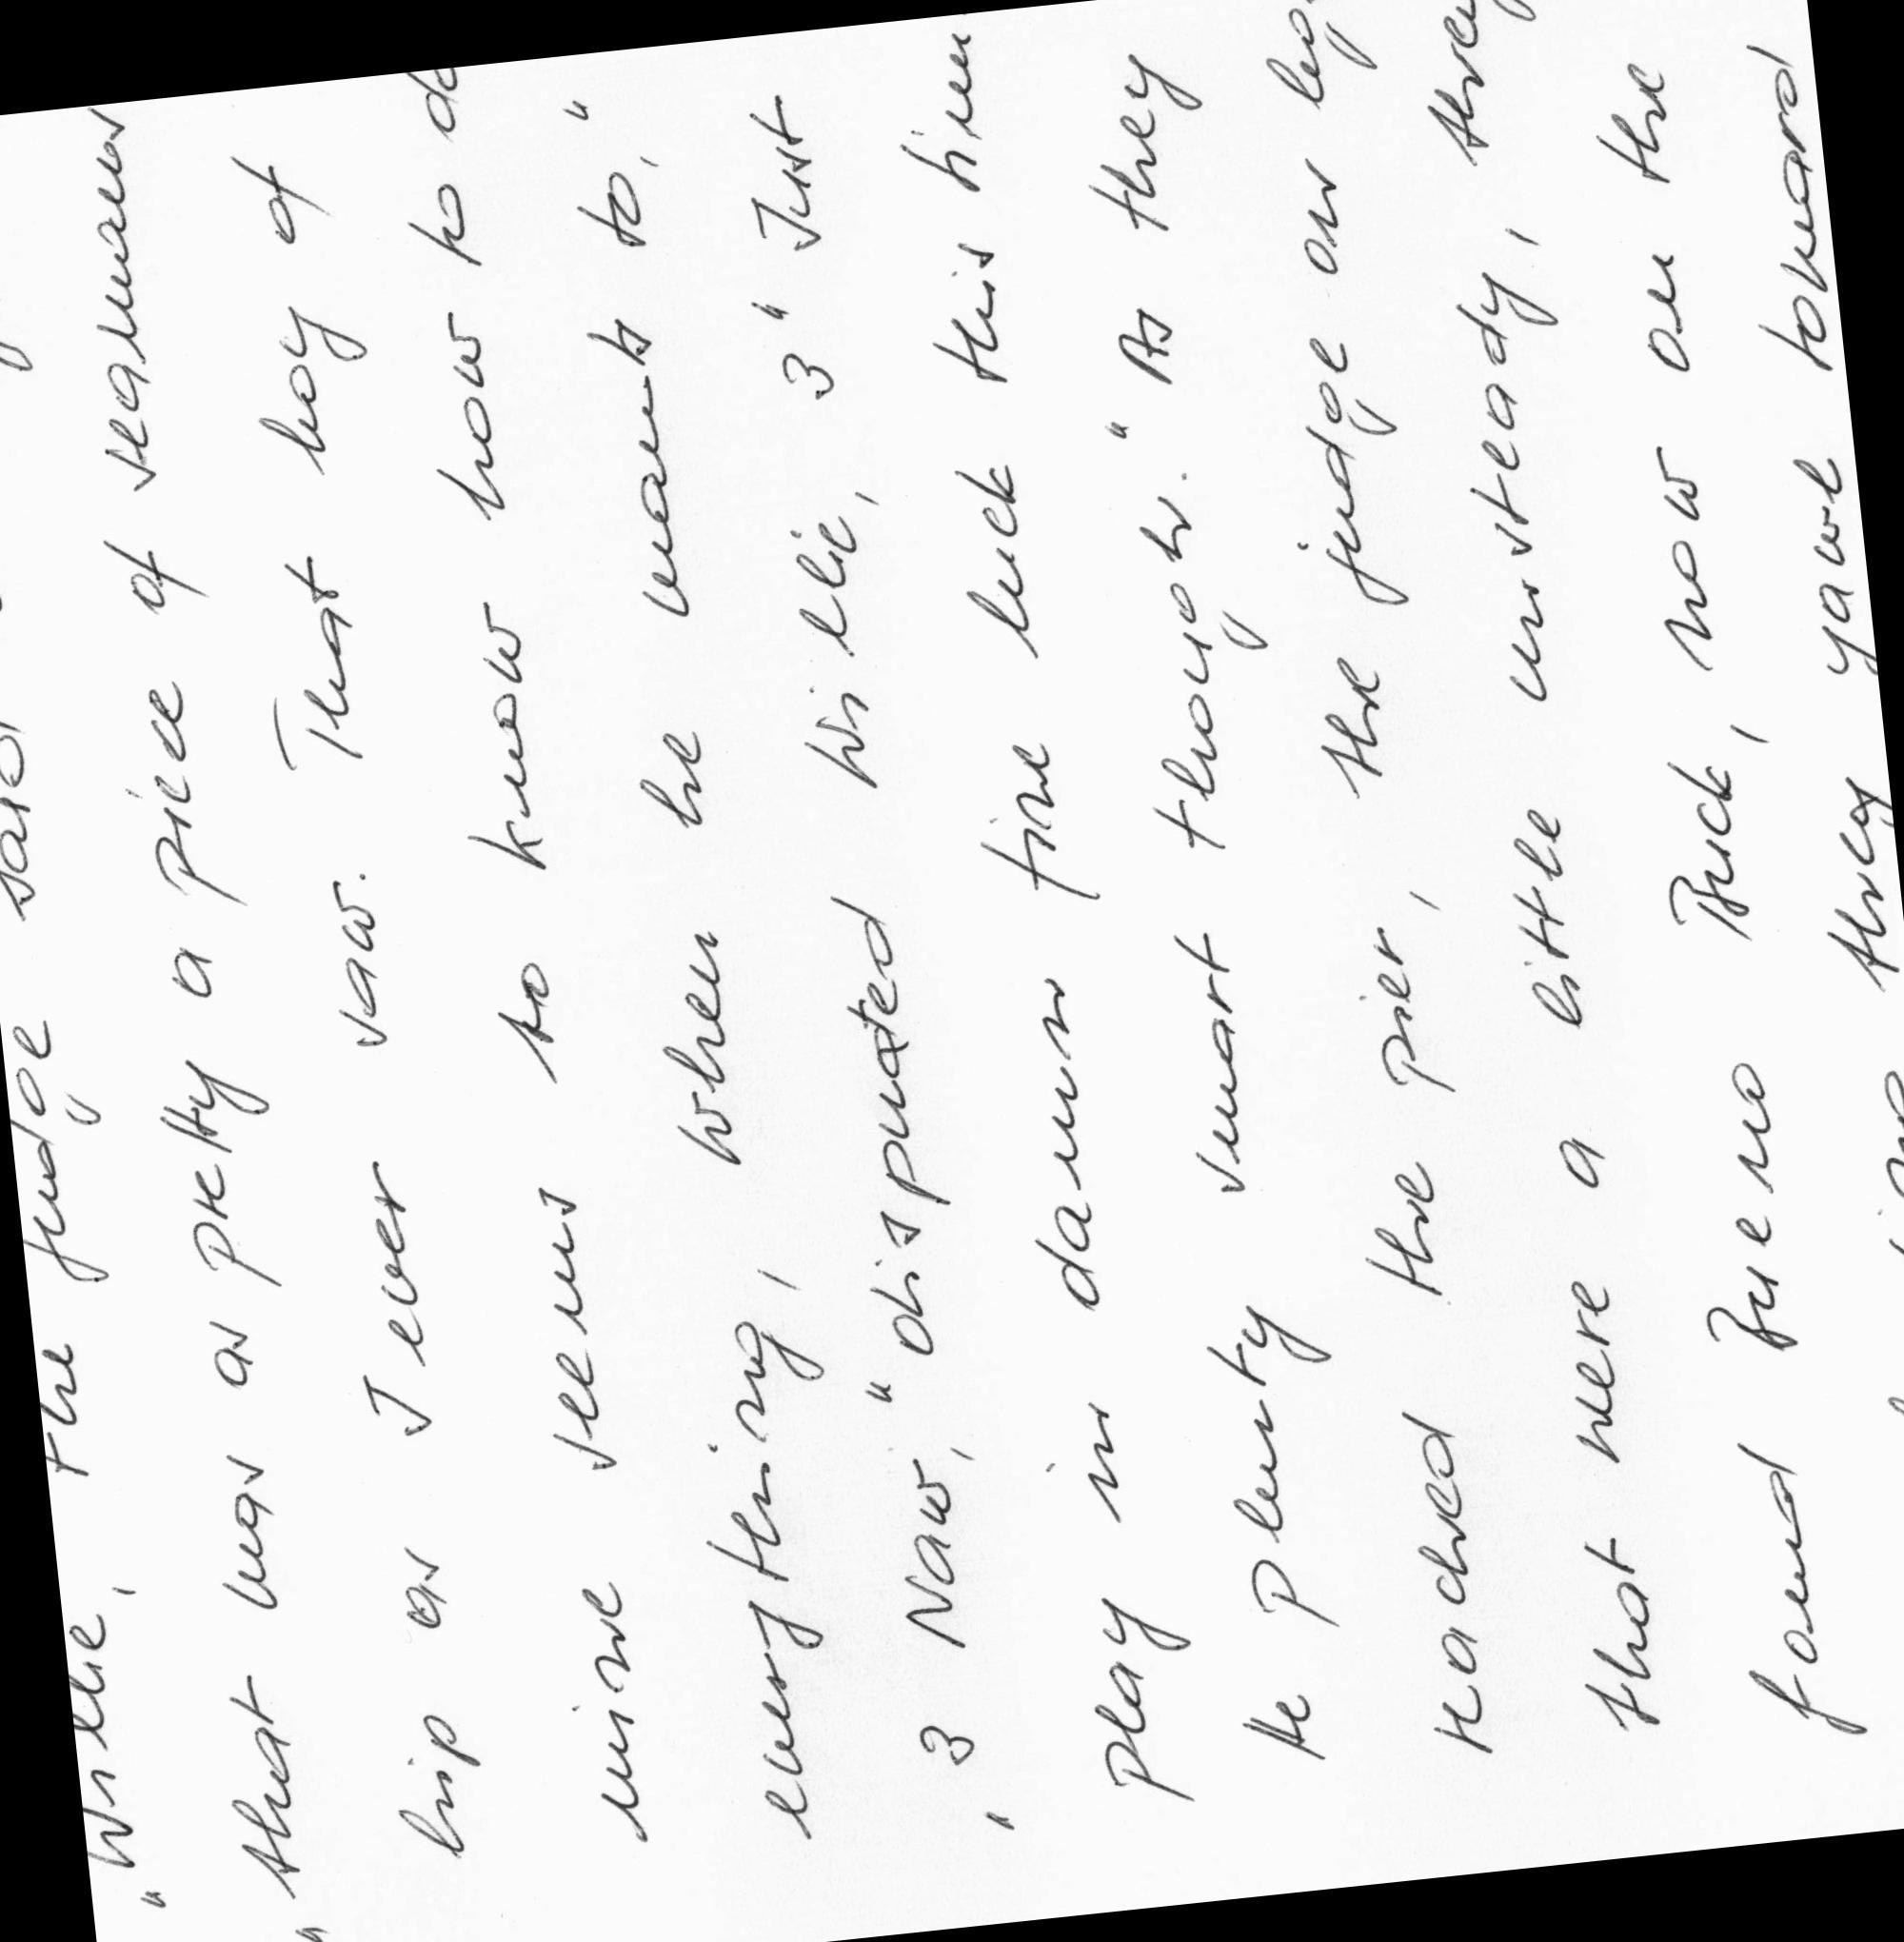 "Willie, the judge said
"that was as pretty a piece of seamans
hip as I ever saw. That boy of
mine seems to know how to do
everything, when he wants to,"
" 3 Naw," disputed Willie, 3 " Just
play in damn fine luck this him
He plenty smart though. " As they
reached the pier, the judge on
that were a little unsteady, they
found Bueno Buck, now on the
they yawl toward